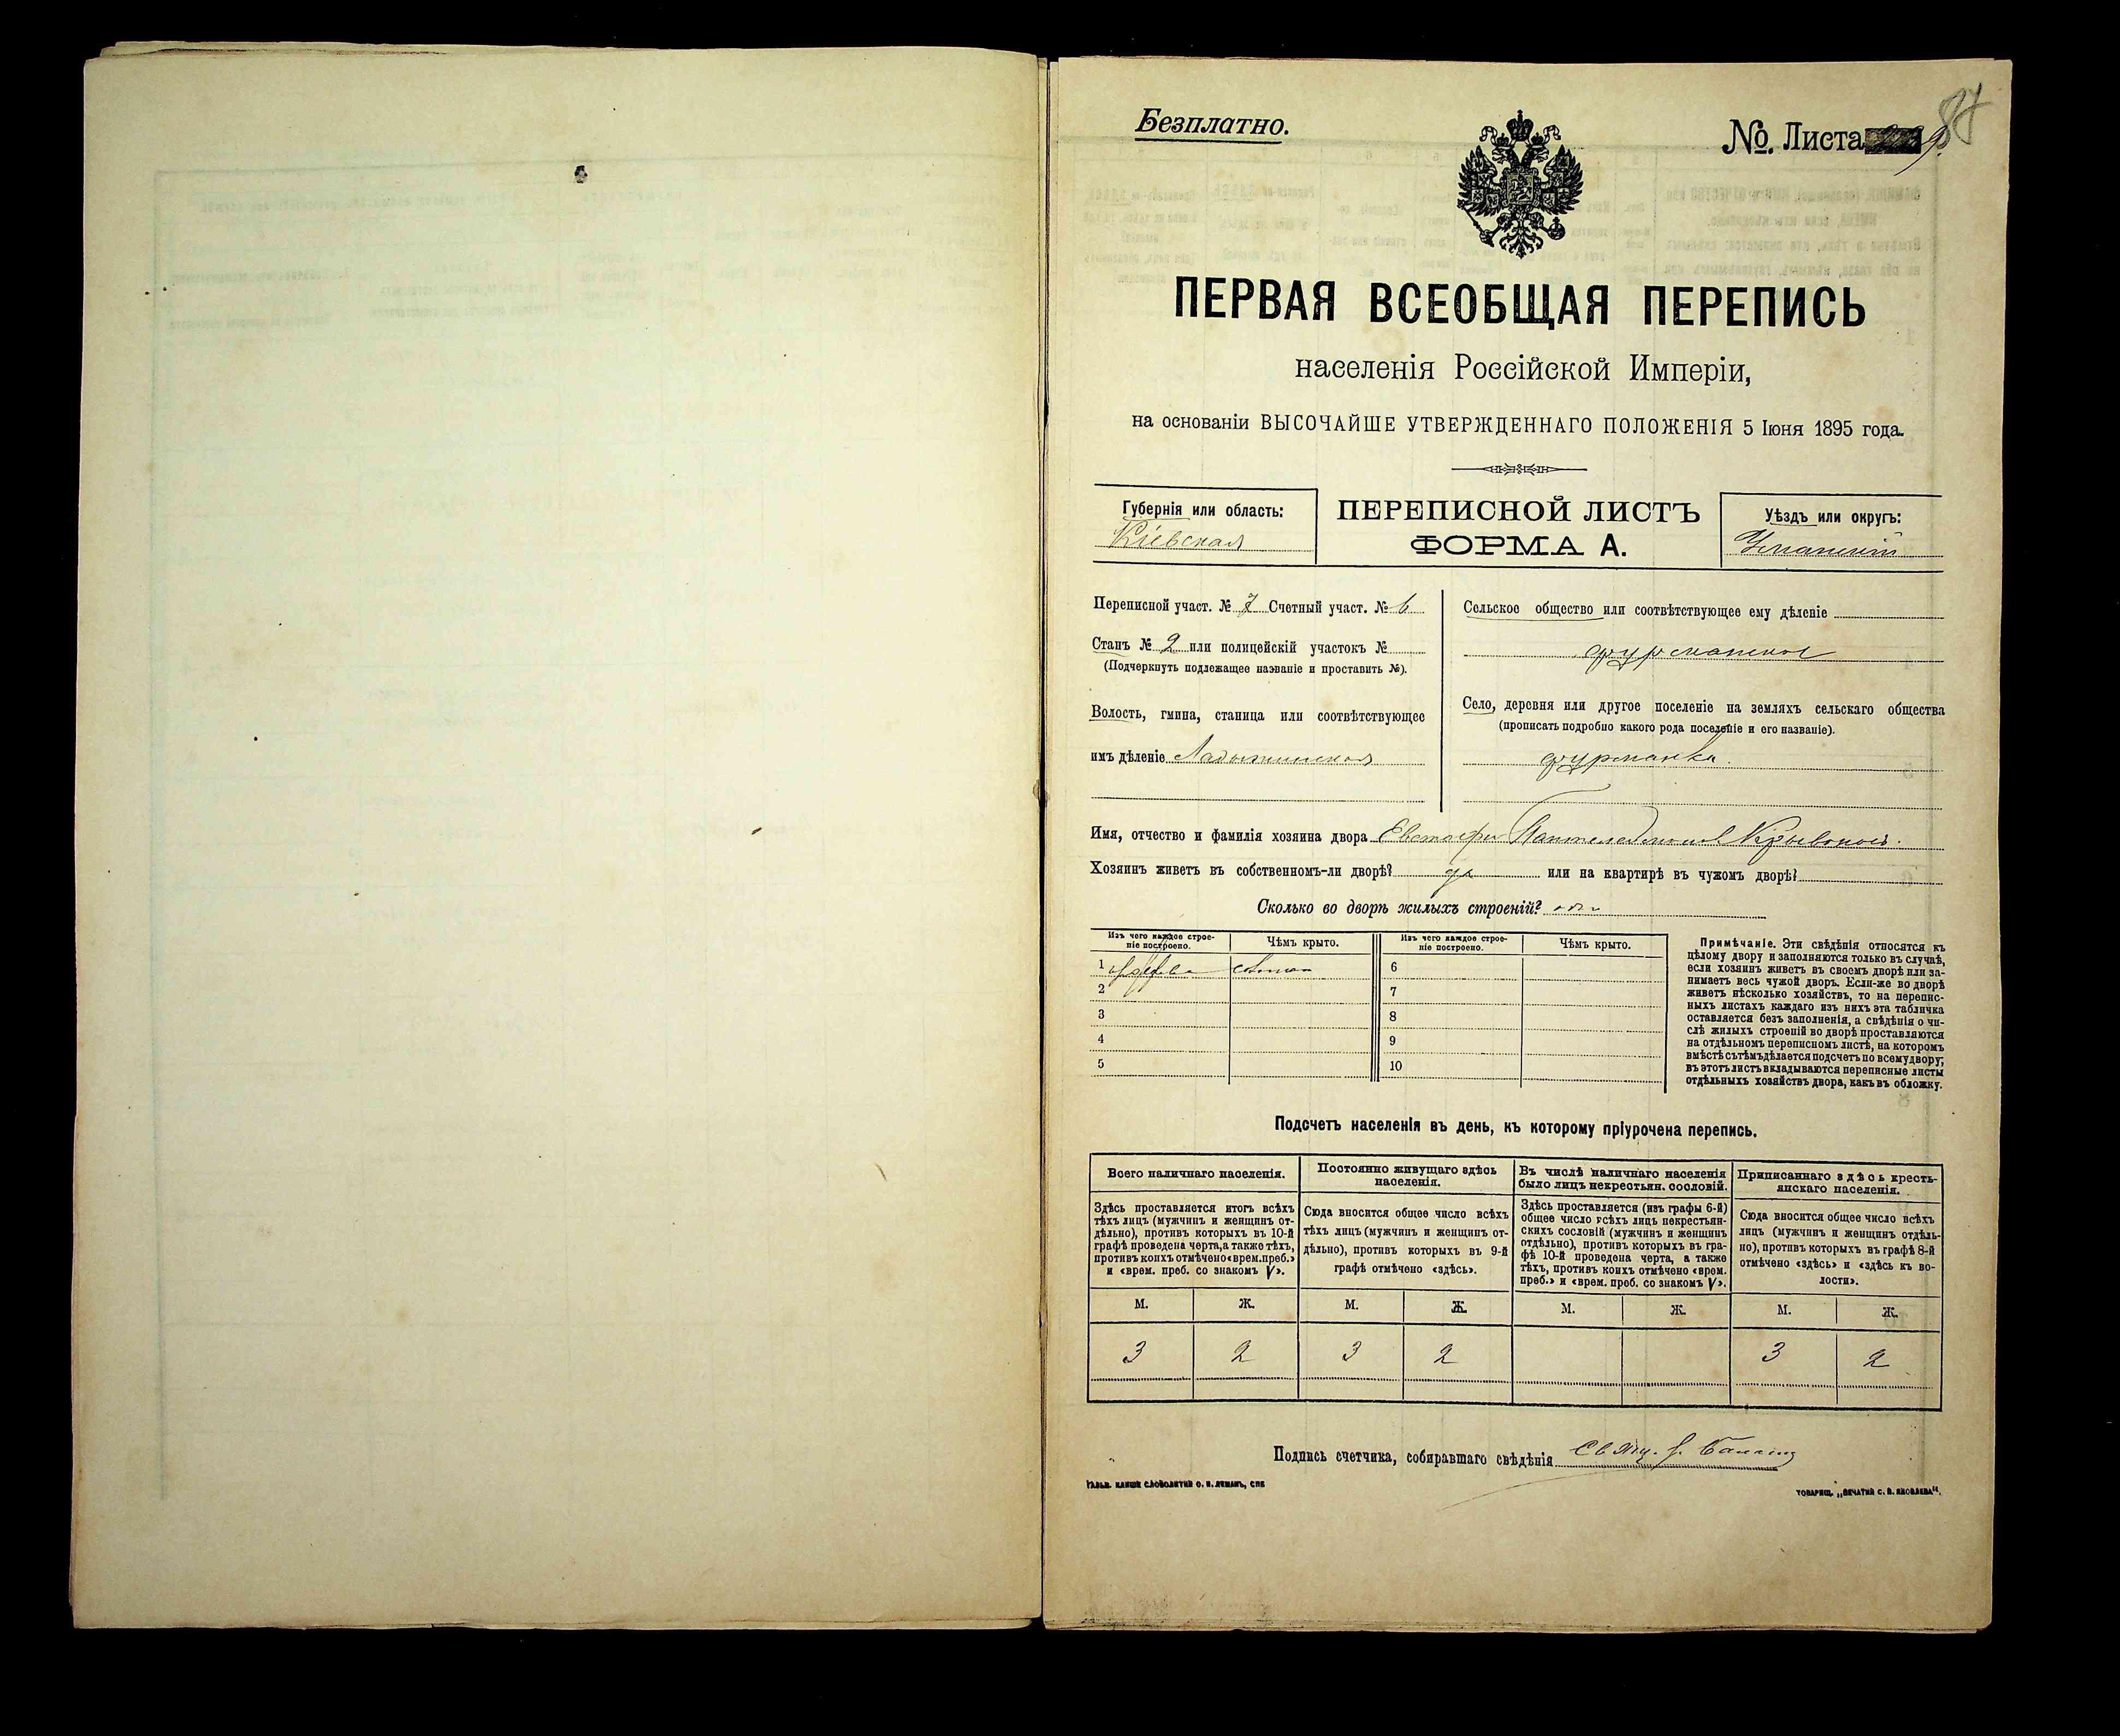 Безплатно.
№. Листа
87
ПЕРВАЯ ВСЕОБЩАЯ ПЕРЕПИСЬ
населенія Россійской Имперіи,
на основаніи ВЫСОЧАЙШЕ УТВЕРЖДЕННАГО ПОЛОЖЕНІЯ 5 Іюня 1895 года.
Губернія или область:
Кіевская
ПЕРЕПИСНОЙ ЛИСТЪ
ФОРМА А.
Уѣздъ или округъ:
Уманскій
Переписной участ. № 7 Счетный участ. № 6
Станъ № 2 или полицейскій участокъ №
(Подчеркнуть подлежащее названіе и проставить №).
Волость, гмина, станица или соотвѣтствующее
имъ дѣленіе Ладыжинская
Сельское общество или соотвѣтствующее ему дѣленіе
фурманское
Село, деревня или другое поселеніе на земляхъ сельскаго общества
(прописать подробно какого рода поселеніе и его названіе).
фурманка.
Имя, отчество и фамилія хозяина двора Евстафи Пантелеймонов Кривонос.
Хозяинъ живетъ въ собственномъ-ли дворѣ? да или на квартирѣ въ чужомъ дворѣ?
Сколько во дворѣ жилыхъ строеній?
Изъ чего каждое строе-
ніе построено.
Чѣмъ крыто.
Изъ чего каждое строе-
ніе построено.
Чѣмъ крыто.
1
6
2
7
3
8
4
9
5
10
Примѣчаніе. Эти свѣдѣнія относятся къ
цѣлому двору и заполняются только въ случаѣ,
если хозяинъ живетъ въ своемъ дворѣ или за-
нимаетъ весь чужой дворъ. Если-же во дворѣ
живетъ нѣсколько хозяйствъ, то на перепис-
ныхъ листахъ каждаго изъ нихъ эта табличка
оставляется безъ заполненія, а свѣдѣнія о чи-
слѣ жилыхъ строеній во дворѣ проставляются
на отдѣльномъ переписномъ листѣ, на которомъ
вмѣстѣ съ тѣмъ дѣлается подсчетъ по всему двору;
въ этотъ листъ вкладываются переписные листы
отдѣльныхъ хозяйствъ двора, какъ въ обложку.
Подсчетъ населенія въ день, къ которому пріурочена перепись.
Всего наличнаго населенія.
Постоянно живущаго здѣсь
населенія.
Въ числѣ наличнаго населенія
было лицъ некрестьян. сословій.
Приписаннаго здѣсь кресть-
янскаго населенія.
Здѣсь проставляется итогъ всѣхъ
тѣхъ лицъ (мужчинъ и женщинъ от-
дѣльно), противъ которыхъ въ 10-й
графѣ проведена черта, а также тѣхъ,
противъ коихъ отмѣчено «врем. преб.»
и «врем. преб. со знакомъ V».
Сюда вносится общее число всѣхъ
тѣхъ лицъ (мужчинъ и женщинъ от-
дѣльно), противъ которыхъ въ 9-й
графѣ отмѣчено «здѣсь».
Здѣсь проставляется (изъ графы 6-й)
общее число всѣхъ лицъ некрестьян-
скихъ сословій (мужчинъ и женщинъ
отдѣльно), противъ которыхъ въ гра-
фѣ 10-й проведена черта, а также
тѣхъ, противъ коихъ отмѣчено «врем.
преб.» и «врем. преб. со знакомъ V».
Сюда вносится общее число всѣхъ
лицъ (мужчинъ и женщинъ отдѣль-
но), противъ которыхъ въ графѣ 8-й
отмѣчено «здѣсь» и «здѣсь къ во-
лости».
М. Ж. М. Ж. М. Ж. М. Ж.
3 2 3 2 3 2
Подпись счетчика, собиравшаго свѣдѣнія
ГАЛЬВ. КЛИШЕ СЛОВОЛИТНИ О. И. ЛЕМАНЪ, СПБ
ТОВАРИЩ. „ПЕЧАТНЯ С. П. ЯКОВЛЕВА“.